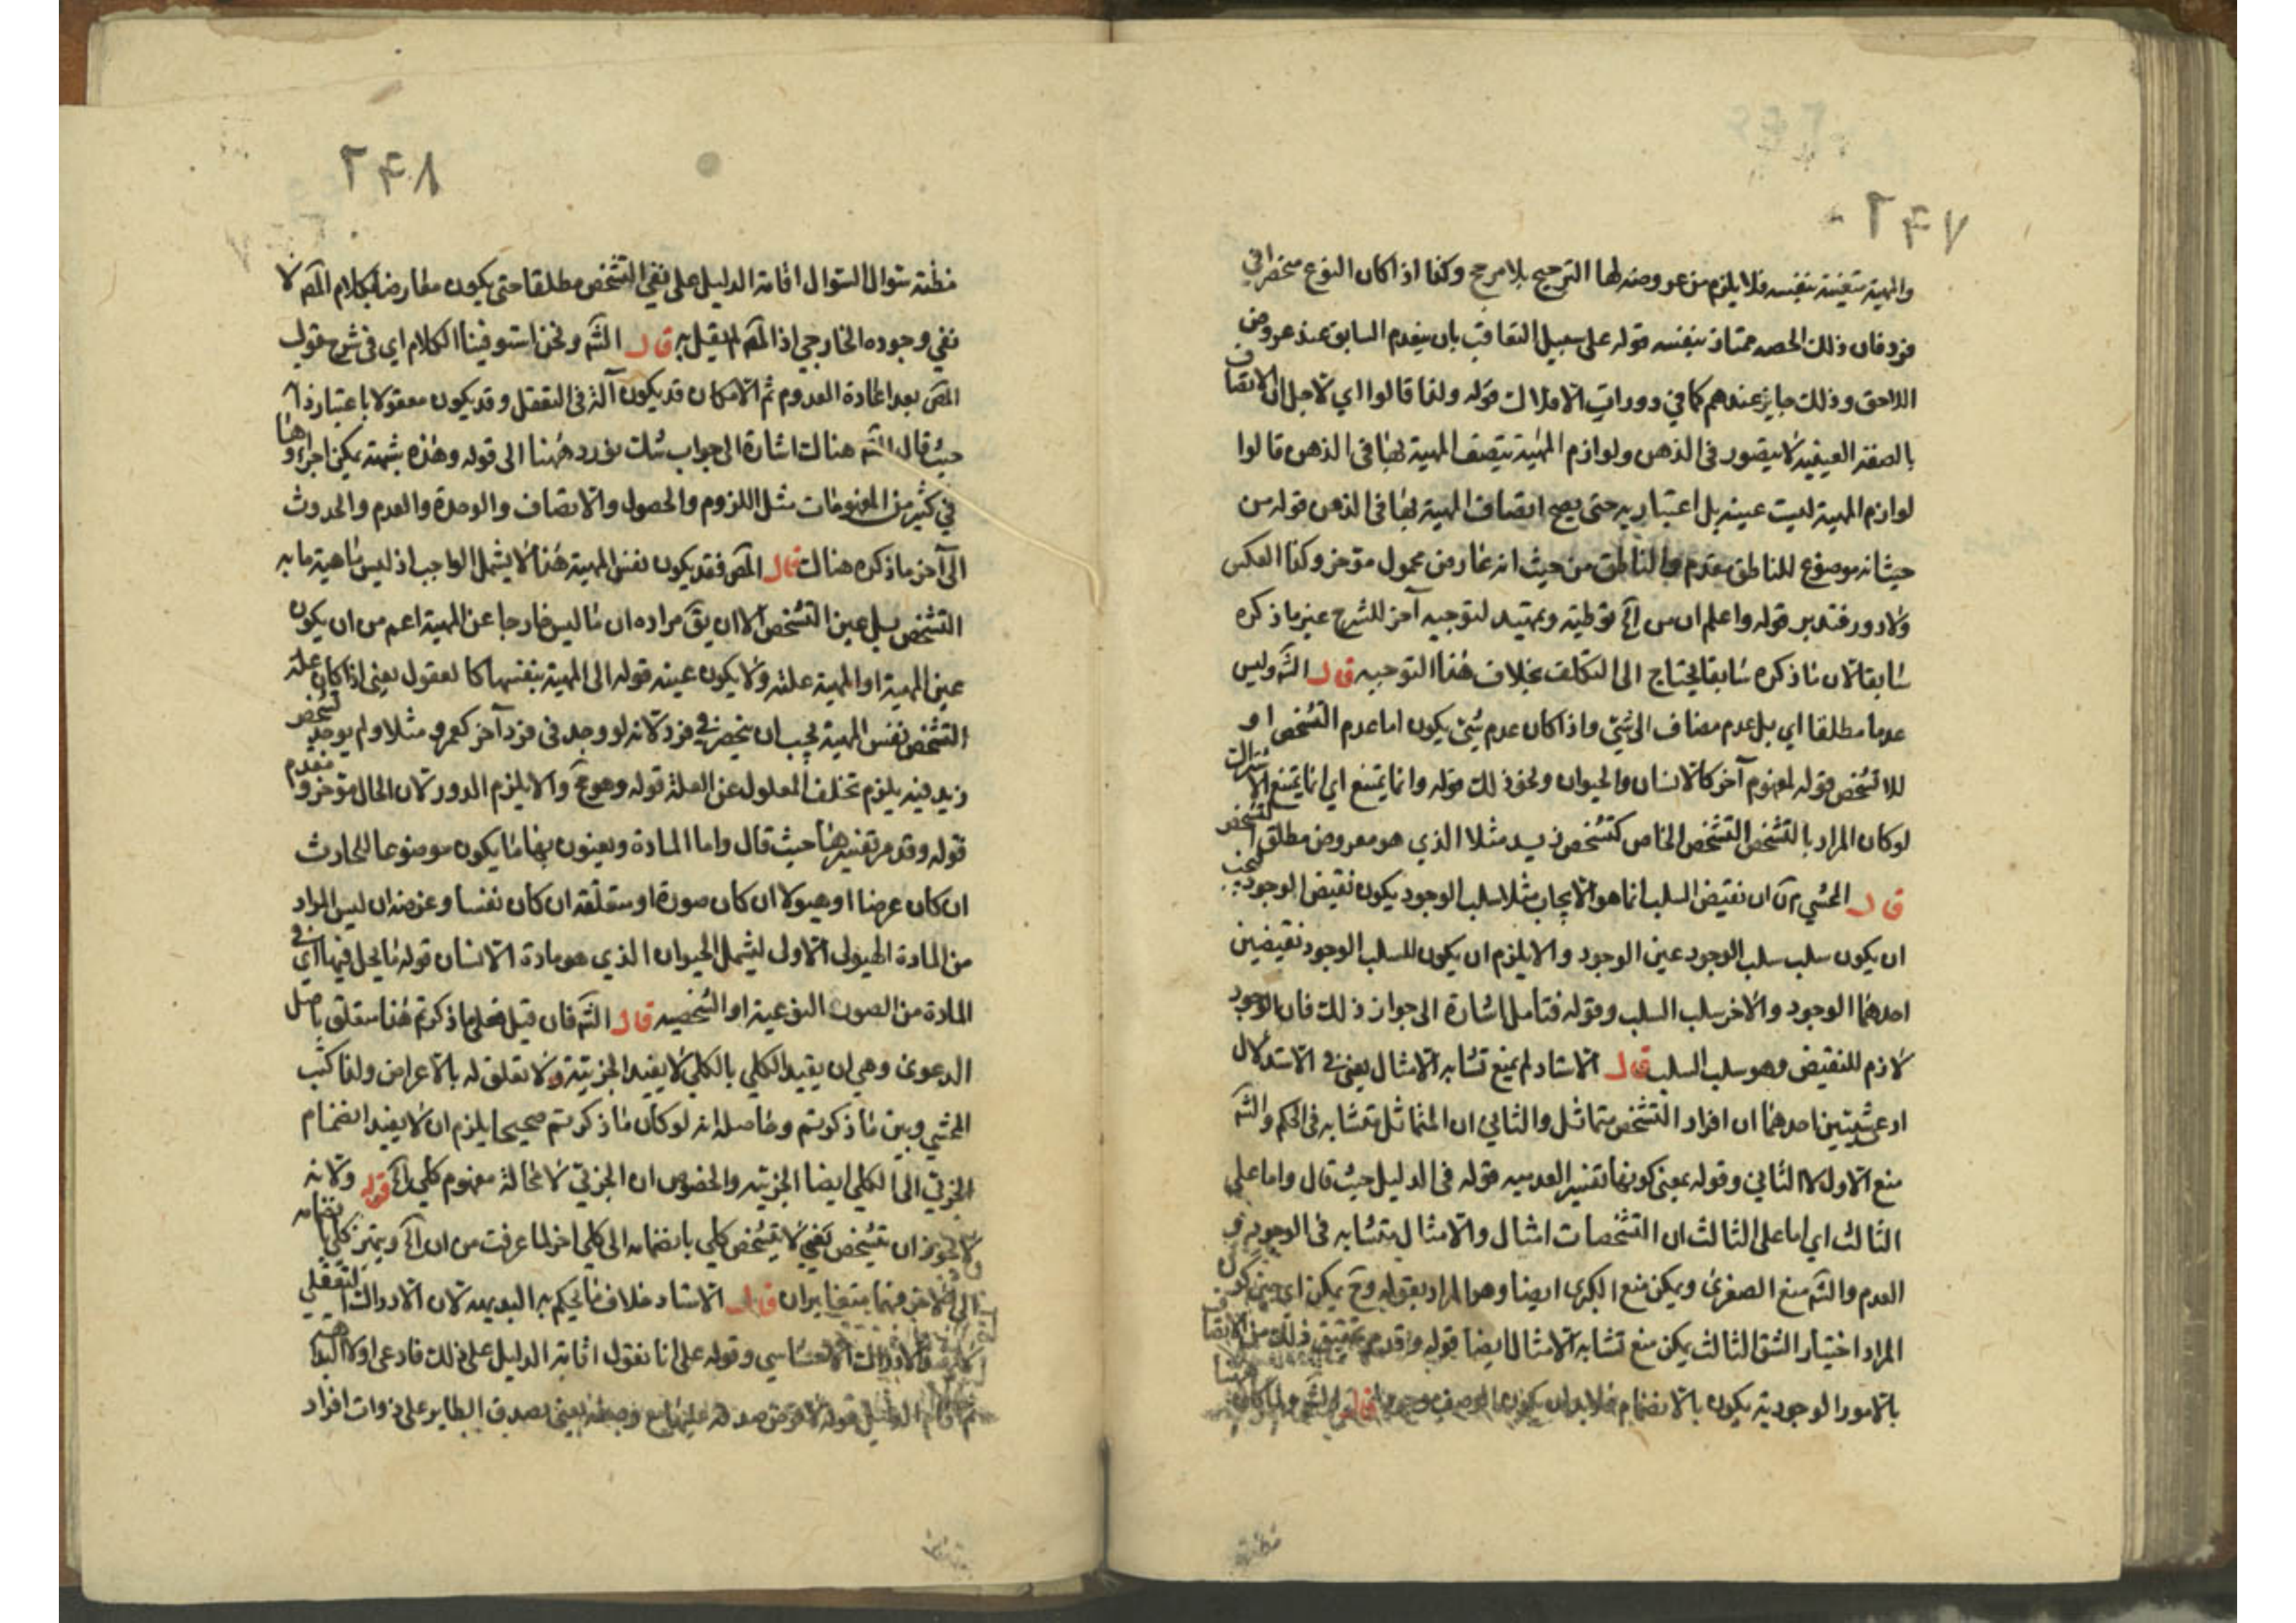 ٢٤٧
والمهية متعينة بنفسه فلا يلزم من عروضه لها الترجيح بلا مرجح وكذا اذا كان النوع منحصرا في
فرد فان ذلك الحصه ممتاز بنفسه قوله على سبيل التعاقب بان يتقدم السابق عند عروض
اللاحق وذلك جايز عندهم كما في دورات الافلاك قوله ولذا قالوا اي لاجل ان الاتصاف
بالصفة العينية لا يتصور في الذهن ولوازم المهية يتصف المهية بها في الذهن قالوا
لوازم المهية ليست عينية بل اعتبارية حتى يصح اتصاف المهية بها في الذهن قوله من
حيث انه موضوع للناطق مقدم والناطق من حيث انه عارض محمول مؤخر وكذا العكس
ولا دور فتدبر قوله واعلم ان من آلخ توطئة وتمهيد لتوجيه آخر للشرح غير ما ذكره
سابقا لان ما ذكره سابقا يحتاج الى التكلف بخلاف هذا التوجيه قال الشه وليس
عدما مطلقا اي بل عدم مضاف الى شئ واذا كان عدم شئ يكون اما عدم التشخص او
للا تشخص قوله لمفهوم آخر كالانسان والحيوان ونحو ذلك قوله وانما يمتنع اي انما يمتنع الاشتراك
لو كان المراد بالتشخص التشخص الخاص كتشخص زيد مثلا الذي هو معروض مطلق التشخص
قال المحشي ان نقيض السلب انما هو الايجاب مثلا سلب الوجود يكون نقيض الوجود فيجب
ان يكون سلب سلب الوجود عين الوجود والا يلزم ان يكون للسلب الوجود نقيضين
احدهما الوجود والاخر سلب السلب وقوله فتامل اشارة الى جواز ذلك فان الوجود
لازم للنقيض وهو سلب السلب قال الاستاد لم يمنع تشابه الامثال يعني في الاستدلال
ادعى شيئين احدهما ان افراد التشخص متماثل والثاني ان المتماثل متشابه في الحكم والشه
منع الاول لا الثاني وقوله بمعنى كونها تفسير العدمية قوله في الدليل حيث قال واما على
الثالث اي اما على الثالث ان التشخصات امثال والامثال متشابه في الوجود و
العدم والشه منع الصغرى ويمكن منع الكبرى ايضا وهو المراد بقوله وح يمكن اي حين كون
المراد اختيار الشق الثالث يمكن منع تشابه الامثال ايضا قوله وقد مر تحقيق ذلك من الاتصاف
بالامور الوجودية يكون بالانضمام فلا بد ان يكون الوصف موجودا قال الشه ولما كان
مظنة
٢٤٨
مظنة سؤال السؤال اقامة الدليل على نفي التشخص مطلقا حتى يكون معارضا لكلام المص لا
نفي وجوده الخارجي اذ المص لم يقل به قال الشه ونحن استوفينا الكلام اي في شرح قول
المص بعد اعادة المعدوم ثم الامكان قد يكون آلة في التعقل وقد يكون معقولا باعتبار ذاته
حيث قال الشه هناك اشارة الى جواب شك يورد ههنا الى قوله وهذه شبهة يمكن اجراؤها
في كثير من المفهومات مثل اللزوم والحصول والاتصاف والوحدة والعدم والحدوث
الى آخر ما ذكره هناك قال المص فقد يكون نفس المهية هذا لا يشمل الواجب اذ ليس ماهية ما به
التشخص بل عين التشخص الا ان يق مراده ان ما ليس خارجا عن المهية اعم من ان يكون
عين المهية او المهية علته ولا يكون عينه قوله الى المهية بنفسها كالعقول يعني اذا كان علة
التشخص نفس المهية يجب ان ينحصر في فرد لانه لو وجد في فرد آخر كعمرو مثلا ولم يوجد تشخص
زيد فيه يلزم تخلف المعلول عن العلة قوله وهو مح والا يلزم الدور لان الحال مؤخر و مقدم
قوله وقد مر تفسيرها حيث قال واما المادة ويعنون بها ما يكون موضوعا للحادث
ان كان عرضا او هيولا ان كان صورة او متعلقه ان كان نفسا وغرضه ان ليس المراد
من المادة الهيولى الاولى ليشمل الحيوان الذي هو مادة الانسان قوله ما يحل فيها اي في
المادة من الصورة النوعية او الشخصية قال الشه فان قيل فعلى ما ذكرتم هذا متعلق باصل
الدعوى وهي ان يقيد الكلي بالكلي لا يفيد الجزئية ولا تعلق له بالاعراض ولذا كتب
المحشي وبين ما ذكرتم وحاصله انه لو كان ما ذكرتم صحيحا يلزم ان لا يفيد انضمام
الجزئي الى الكلي ايضا الجزئية والخصوص ان الجزئي لا محالة مفهوم كلي آلخ قوله ولانه
لا يجوز ان يتشخص نفي لا يتشخص كلي بانضمامه الى كلي اخر لما عرفت من ان آلخ ويتميز كلي بانضمامه
الى الآخر فهما متغايران قال الاستاد خلاف ما يحكم به البديهه لان الادراك التعقلي
الاحساسي وقوله على انا نقول اثابة الدليل على ذلك فادعى اولا البداهة
الدليل قوله صدقه عليها يعني يصدق الطاير على ذوات افراد